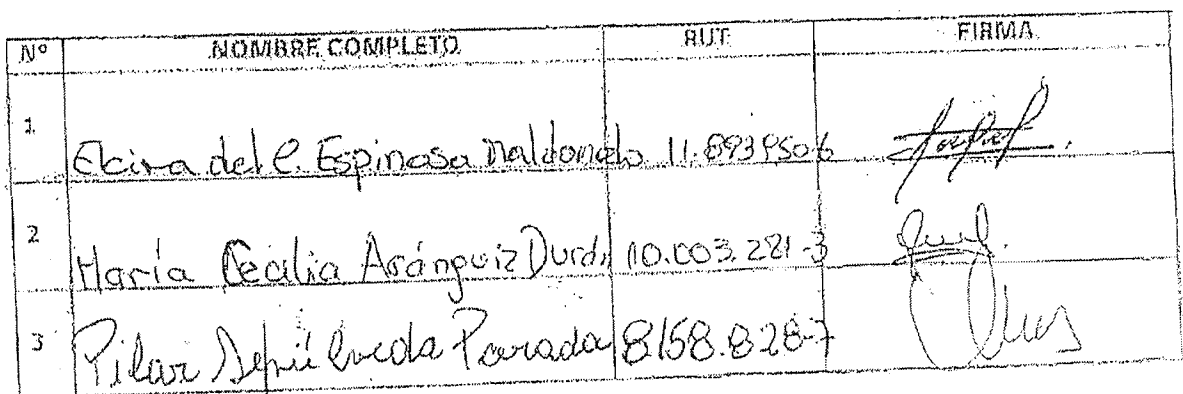 Nº NOMBRE COMPLETO RUT FIRMA
1. Elcira del C. Espinosa Maldonado
2 María Cecilia Aránguiz 10.003.281-3
3 Pilar Sepúlveda Parada 8.158.828-7